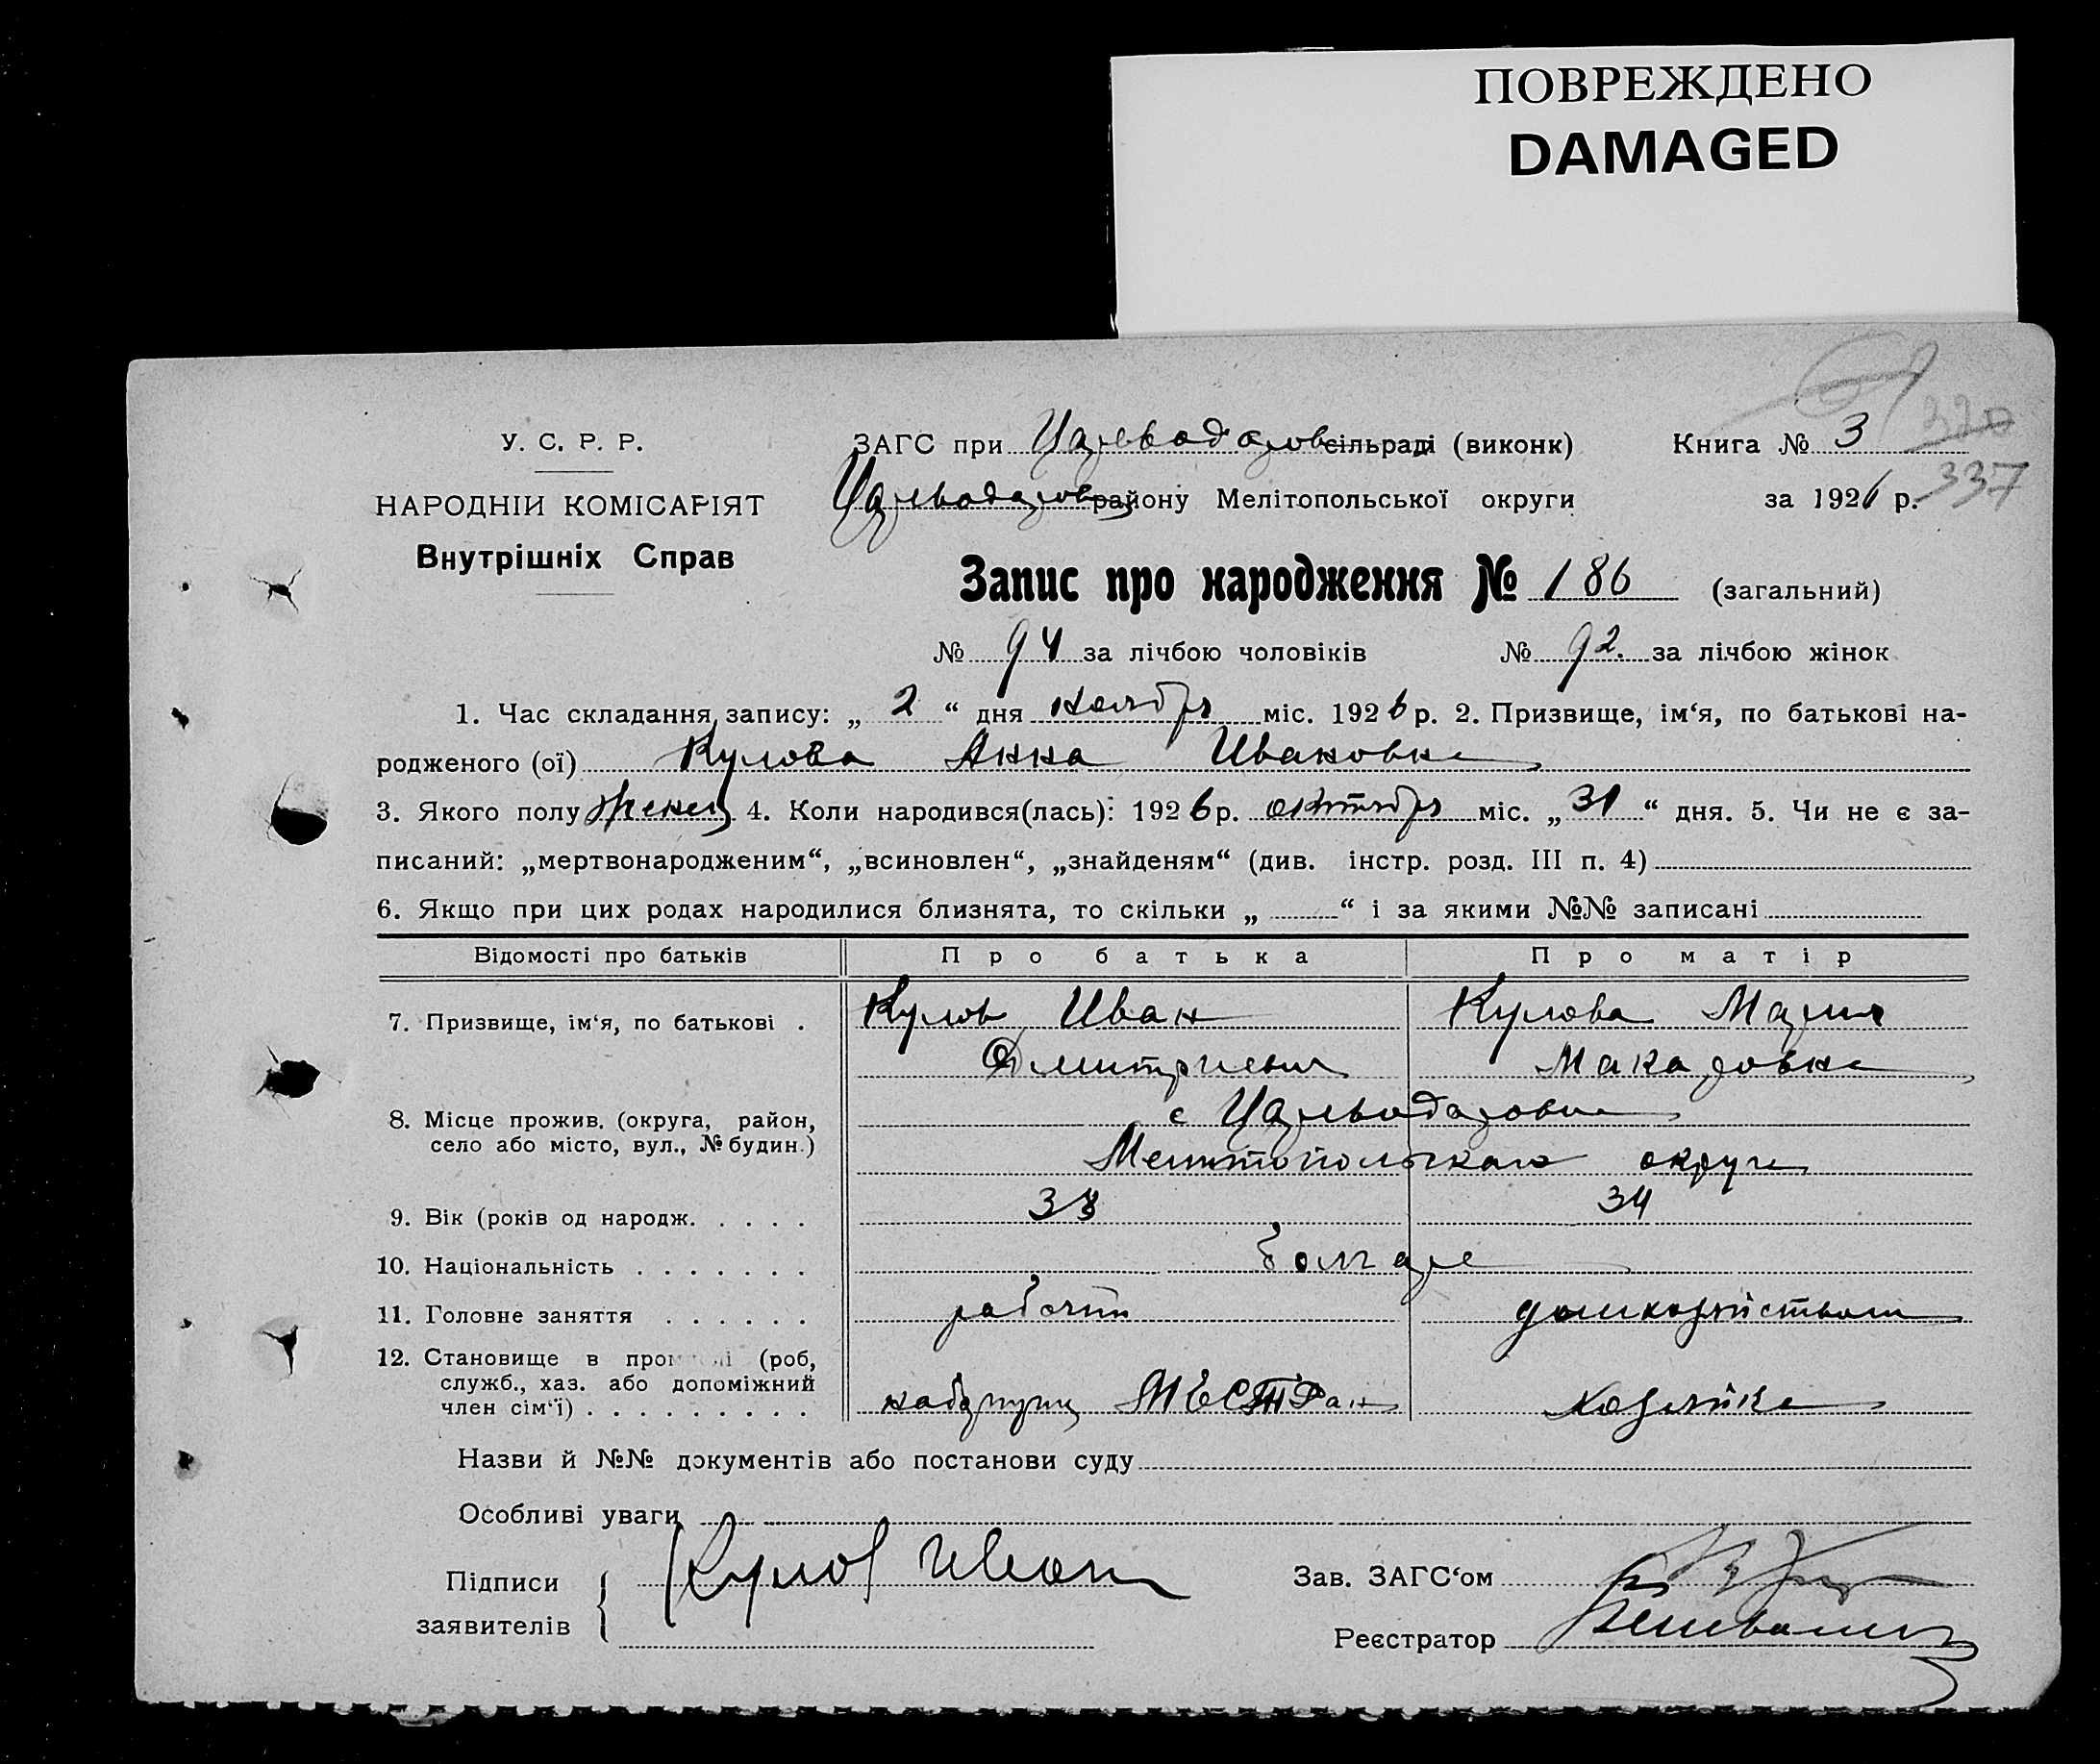 ПОВРЕЖДЕНО
DAMAGED
320
337
У. С. Р. Р.
НАРОДНІЙ КОМІСАРІЯТ
Внутрішніх Справ
ЗАГС при Царьводаров сільраді (виконк) Книга № 3
Царьводаров району Мелітопольської округи за 1926 р.
Запис про народження № 186 (загальний)
№ 94 за лічбою чоловіків № 92. за лічбою жінок
1. Час складання запису: „ 2 “ дня ноября міс. 1926 р. 2. Призвище, ім‘я, по батькові на-
родженого (ої) Кулова Анна Ивановна
3. Якого полу женщ 4. Коли народився(лась): 1926 р. октября міс. „ 31 “ дня. 5. Чи не є за-
писаний: „мертвонародженим“, „всиновлен“, „знайденям“ (див. інстр. розд. III п. 4)
6. Якщо при цих родах народилися близнята, то скільки „ “ і за якими №№ записані
Відомості про батьків Про батька Про матір
7. Призвище, ім‘я, по батькові . Кулов Иван Кулова Мария
Дмитриевич Макаровна
8. Місце прожив. (округа, район, с Царьводаровка
село або місто, вул., № будин.) Мелитопольского округа
9. Вік (років од народж. . . . . 38 34
10. Національність . . . . . . . болгаре
11. Головне заняття . . . . . . рабочий домхозяйством
12. Становище в пром лі (роб,
служб., хаз. або допоміжний
член сім‘ї) . . . . . . . . . хозяйка
Назви й №№ документів або постанови суду
Особливі уваги
Підписи Кулов Иван Зав. ЗАГС‘ом
заявителів Реєстратор